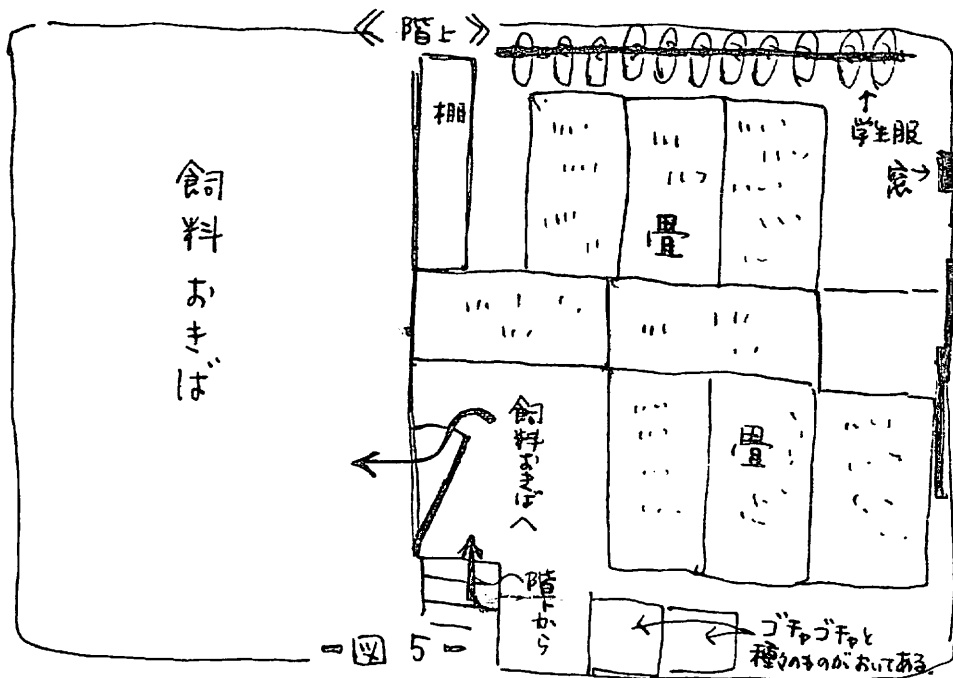 ≪ 階上 ≫
棚
学生服
窓→
飼料おきば
畳
畳
飼料おきばへ
階下から
ゴチャゴチャと
種々のものがおいてある。
-図 5-